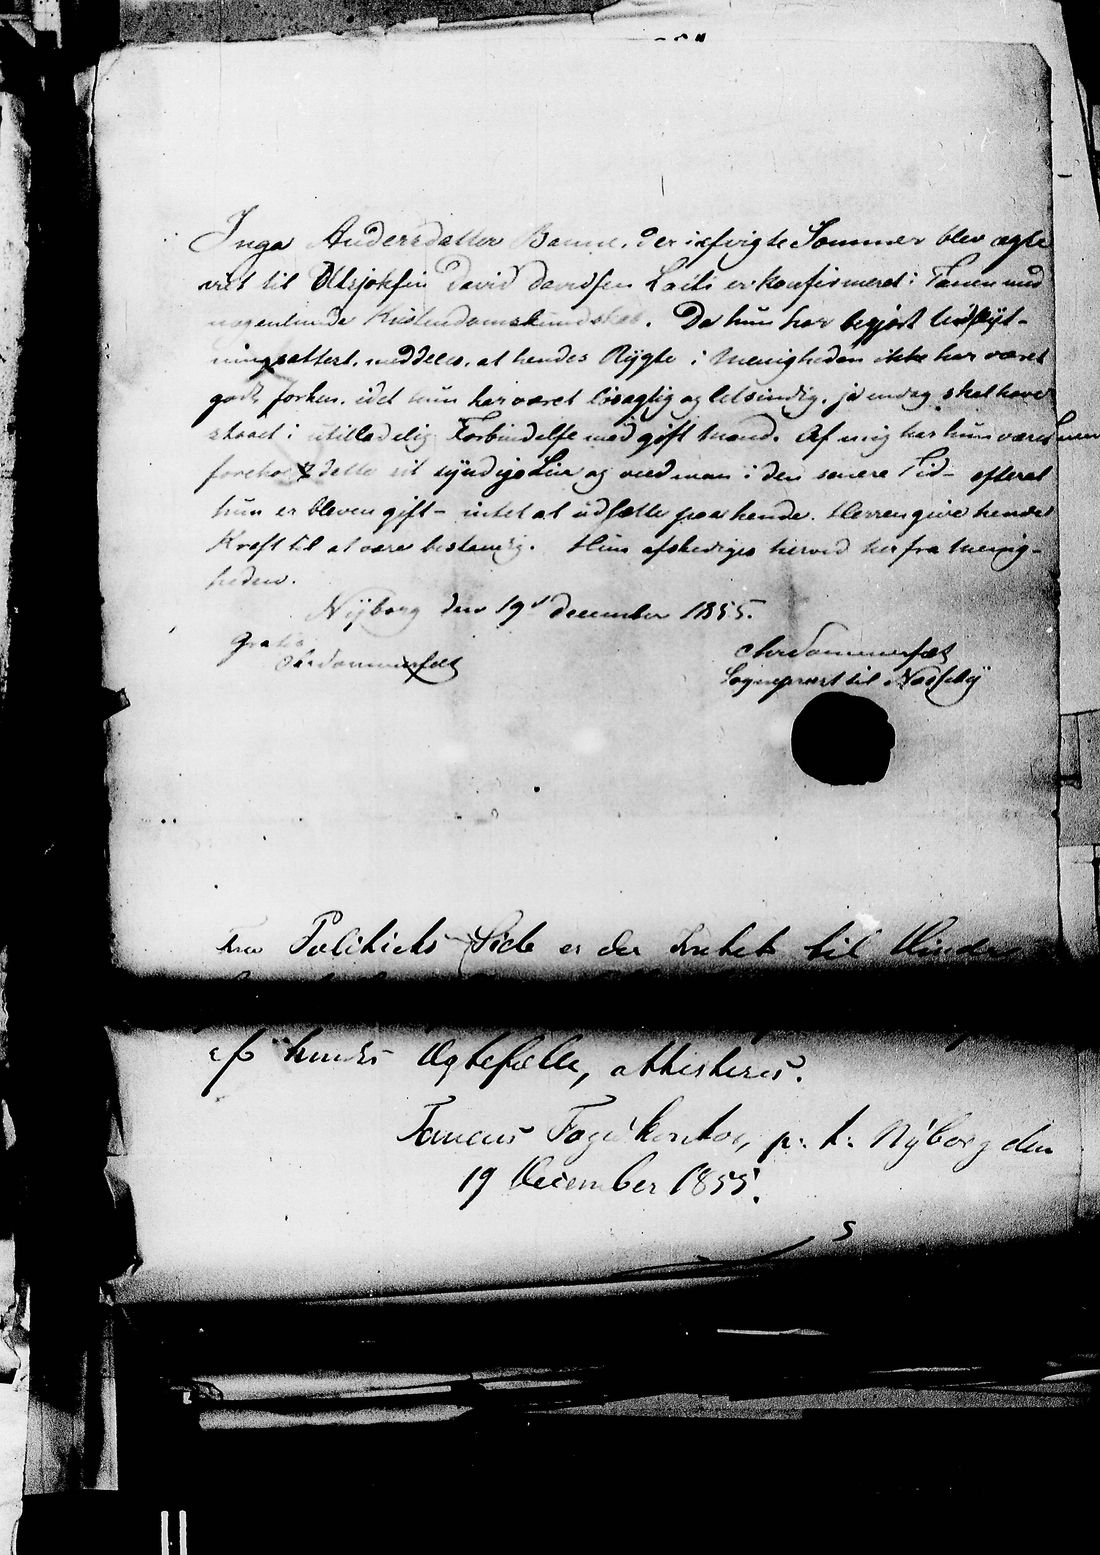 Inga Andersdatter Banne, der isfivgte Sommer blev ægte
viet til Utsjokfin David Davidsen Laiti er konfirmeret i Tanen med
nogenlunde Kristendomskundskab. Da hun har begjært Udflyt-
ningsattest, meddeles, at hendes Rygte i Menigheden ikke har været
godt forhen, idet hun har været løsagtig og letsindig, ja endog skal have
staaet i utilladelig Forbindelse med gift Mand. Af mig har hun været
foreholdt dette sit syndige Liv og veed man i den senere Tid - efterat
hun er bleven gift - intet at udsætte paa hende. Herren give hende
Kraft til at være bestandig. Hun afskediges herved herfra Menig-
heden.
Nyborg den 19d December 1855.
Gratis
Chr Sommerfelt
Chr Sommerfelt
Sogneprest til Næsseby
Fra Politiets Side er der Intet til Hinder
af hendes Ægtefælle, attesteres.
Tanens Fogdkontor, p. t. Nyborg den
19 December 1855.